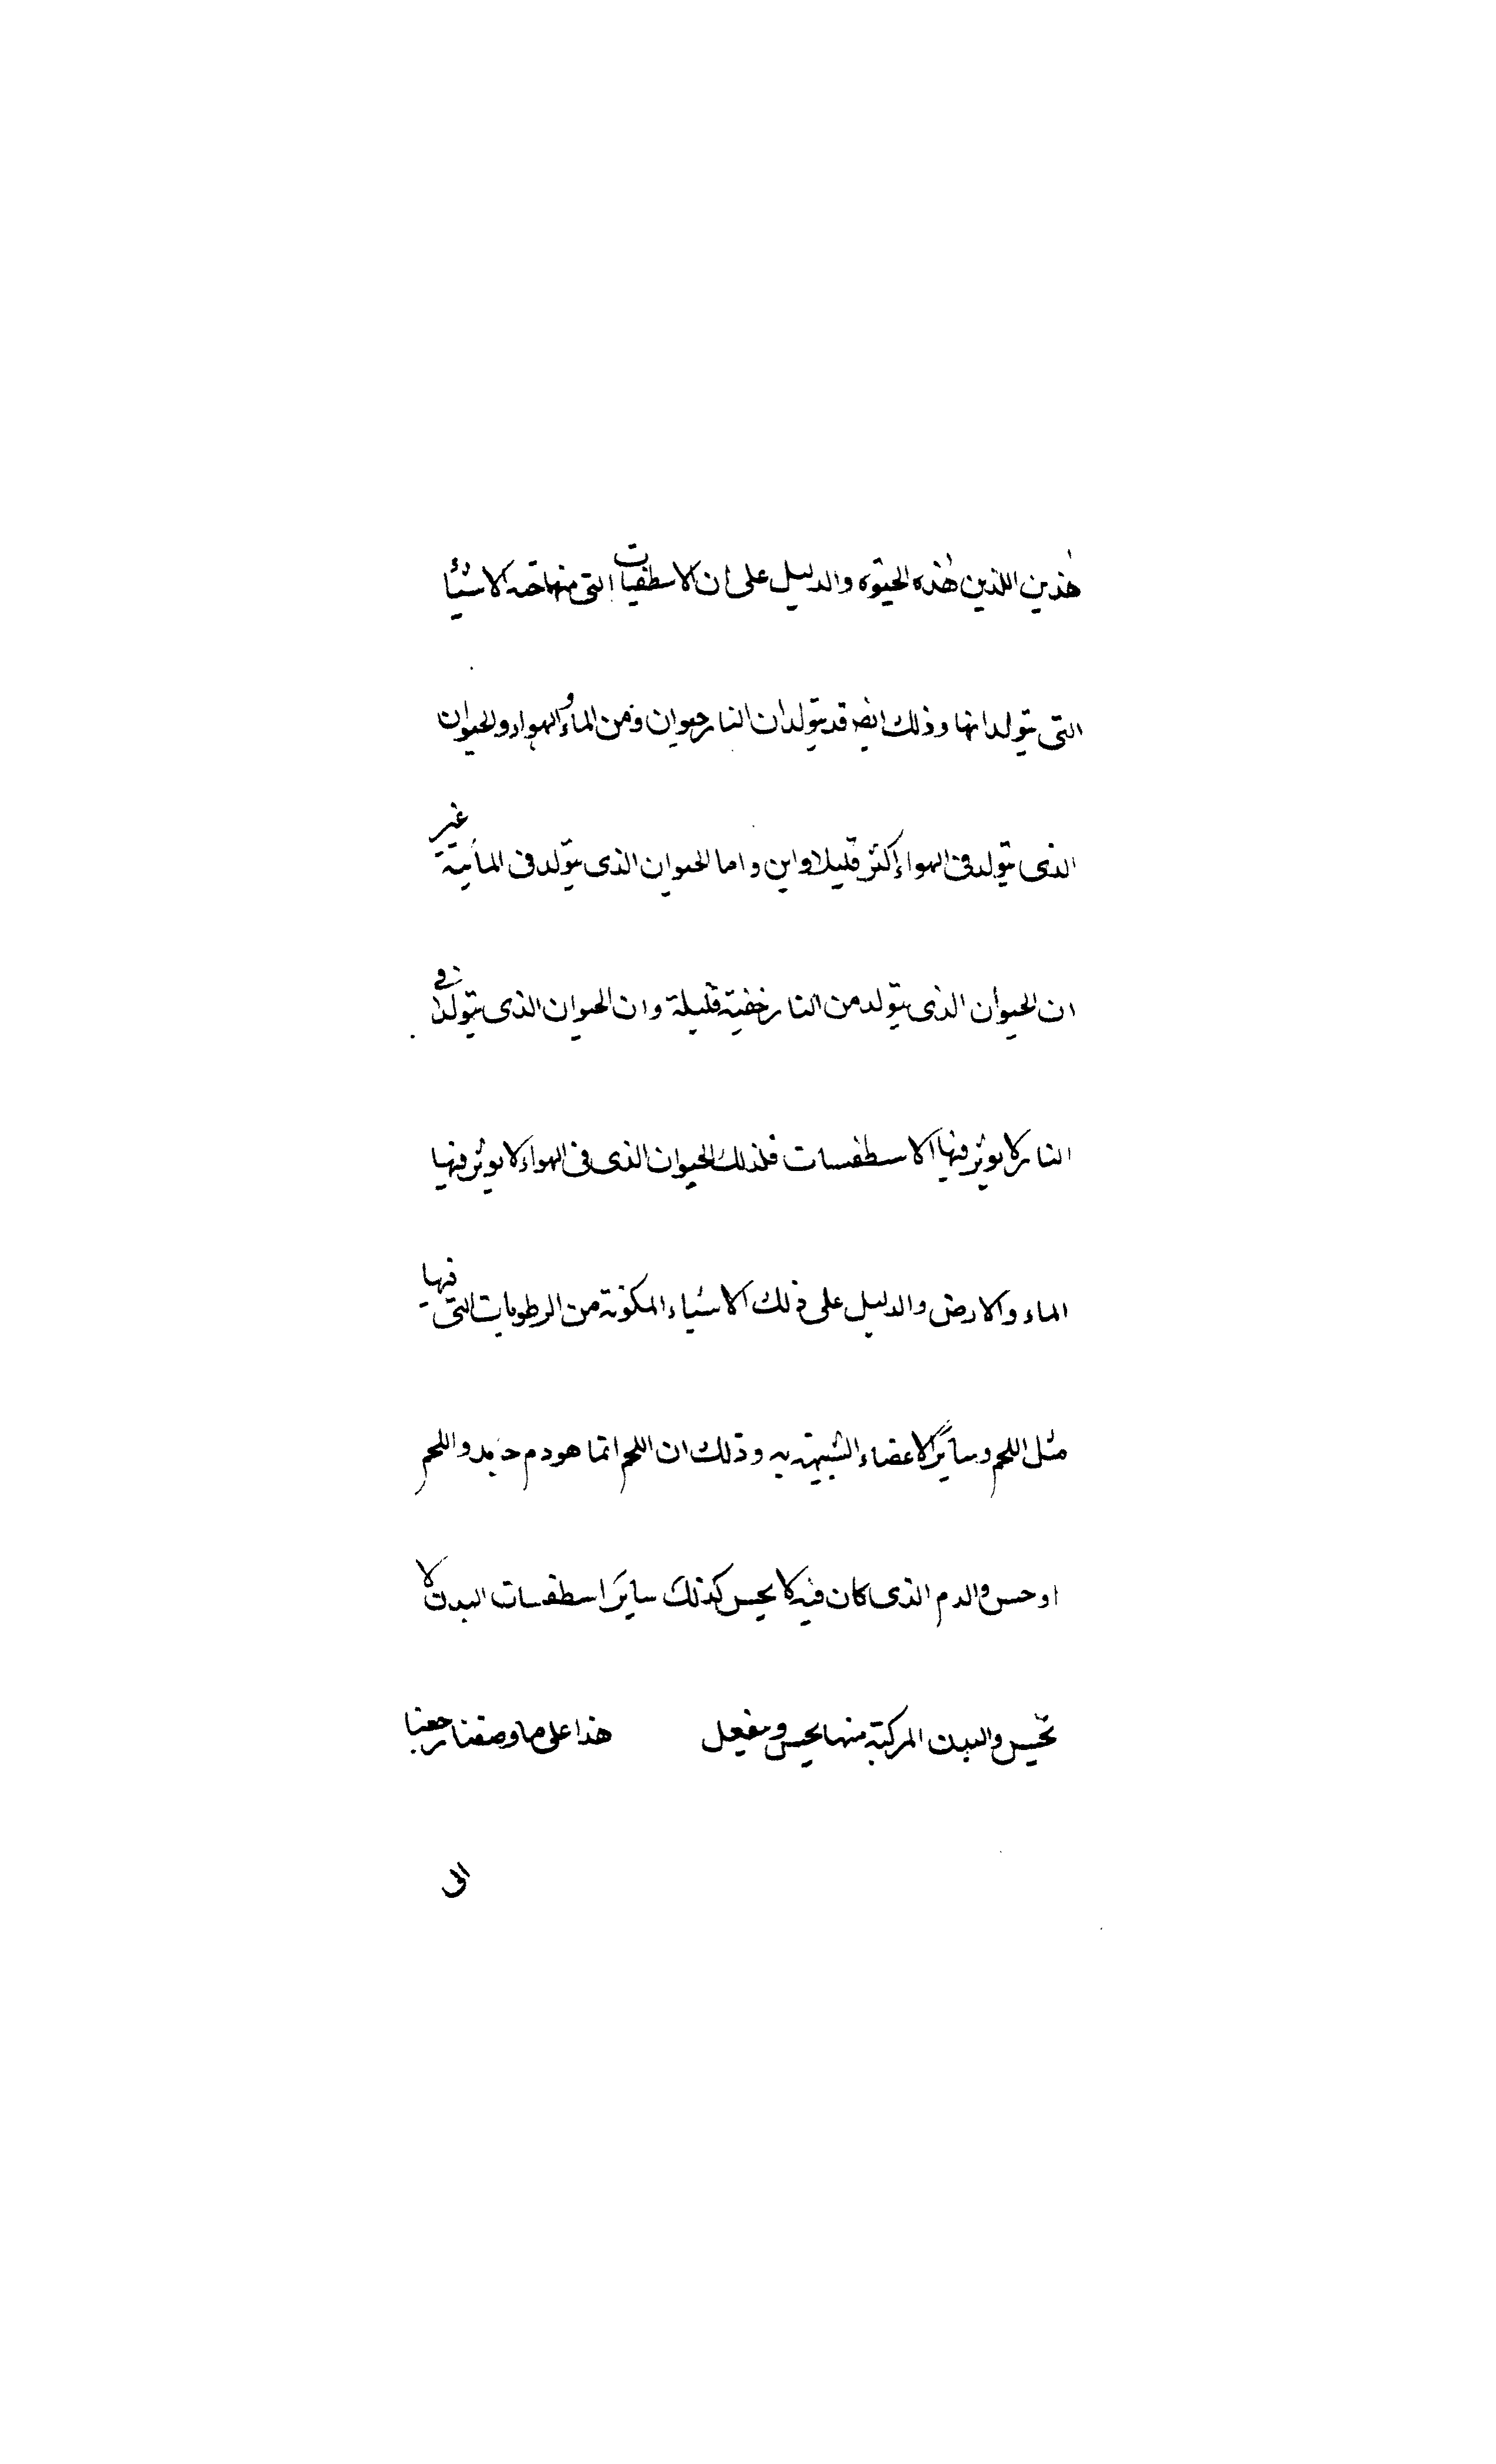 هٰذين اللذين هٰذه الحيٰوه والدليل على ان الاسطقيات التى منها الاشيأ
التى يتولد انها وذلك ايضه قد يتولد ان النار حيوان ومن المأ والهواء والحيوان
الذى يتولد فى الهواء اكثر قليلا واين واما الحيوان الذى يتولد فى المأيية غير
ان الحيوان الذى يتولد من النار خفية قليلة وان الحيوان الذى يتولد فى
النار لا يوثر فيها الاسطقسات فلذلك الحيوان الذى فى الهواء لا يوثر فيها
الماء والارض والدليل على ذلك الاشياء المكونة من الرطوبات التى فيها
مثل اللحم وسأير الاعضاء الشبيهة به وذلك ان اللحم انما هو دم جامد واللحم
او حس والدم الذى كان فيه لا يحس كذلك ساير اسطقسات البدن لا
تحس والبدن المركبة منها يحس ويفعل هذا على ما وصفنا رجعنا
الى